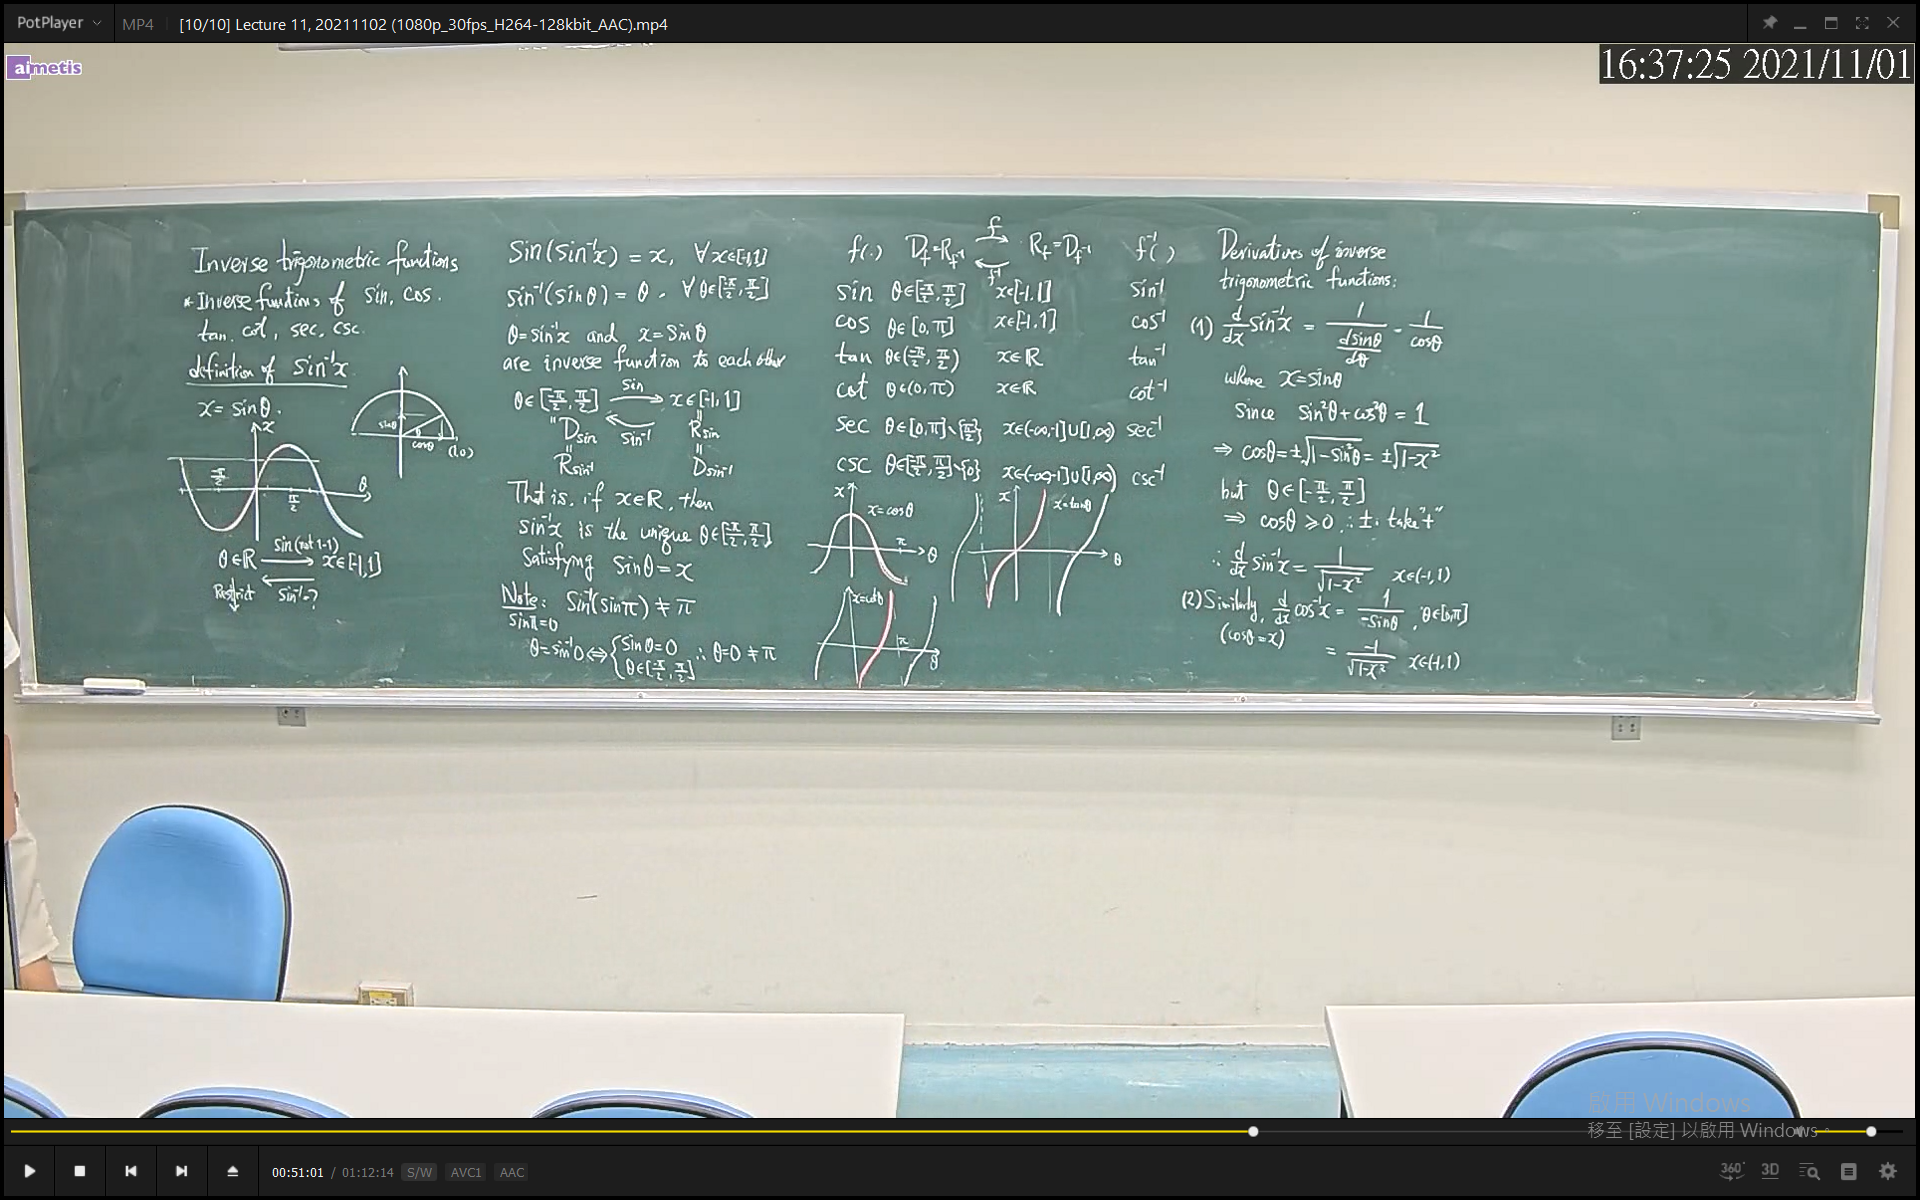 PotPlayer
MP4
[10/10] Lecture 11, 20211102 (1080p_30fps_H264-128kbit_AAC).mp4
aimetis
16:37:25 2021/11/01
Inverse trigonometric functions
* Inverse functions of sin, cos.
tan, cot, sec, csc.
definition of sin⁻¹x
x = sinθ.
x
sinθ
θ
cosθ
(1,0)
-π/2
π/2
θ
θ∈ℝ ⟶ x∈[-1,1]
sin (not 1-1)
Restrict
sin⁻¹=?
sin(sin⁻¹x) = x, ∀x∈[-1,1]
sin⁻¹(sinθ) = θ, ∀θ∈[-π/2, π/2]
θ=sin⁻¹x and x=sinθ
are inverse function to each other
sin
θ∈[-π/2, π/2] ⟶ x∈[-1,1]
"D_sin ⟵ sin⁻¹ R_sin
R_sin⁻¹ D_sin⁻¹
That is, if x∈ℝ, then
sin⁻¹x is the unique θ∈[-π/2, π/2]
satisfying sinθ=x
Note: sin⁻¹(sinπ) ≠ π
sinπ=0
θ=sin⁻¹0 ⇔ { sinθ=0
θ∈[-π/2, π/2] ∴ θ=0 ≠ π
f
f(.) D_f=R_f⁻¹ ⇌ R_f=D_f⁻¹ f⁻¹( )
f⁻¹
sin θ∈[-π/2, π/2] x∈[-1,1] sin⁻¹
cos θ∈[0,π] x∈[-1,1] cos⁻¹
tan θ∈(-π/2, π/2) x∈ℝ tan⁻¹
cot θ∈(0,π) x∈ℝ cot⁻¹
sec θ∈[0,π]∖{π/2} x∈(-∞,-1]∪[1,∞) sec⁻¹
csc θ∈[-π/2, π/2]∖{0} x∈(-∞,-1]∪[1,∞) csc⁻¹
x
x=cosθ
π
θ
x
x=tanθ
θ
x=cotθ
π
θ
Derivatives of inverse
trigonometric functions:
(1) d/dx sin⁻¹x = 1/(dsinθ/dθ) = 1/cosθ
where x=sinθ
Since sin²θ+cos²θ = 1
⇒ cosθ=±√(1-sin²θ) = ±√(1-x²)
but θ∈[-π/2, π/2]
⇒ cosθ ≥ 0 ∴ ±, take "+"
∴ d/dx sin⁻¹x = 1/√(1-x²) x∈(-1,1)
(2) Similarly, d/dx cos⁻¹x = 1/(-sinθ), θ∈[0,π]
(cosθ=x)
= -1/√(1-x²) x∈(-1,1)
啟用 Windows
移至 [設定] 以啟用 Windows。
00:51:01 / 01:12:14 S/W AVC1 AAC
360°
3D